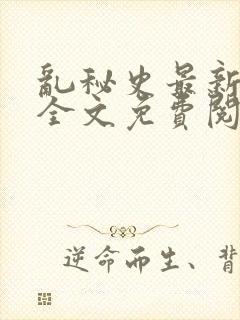 亂秘史最新
全文免費閱
逆命而生、背